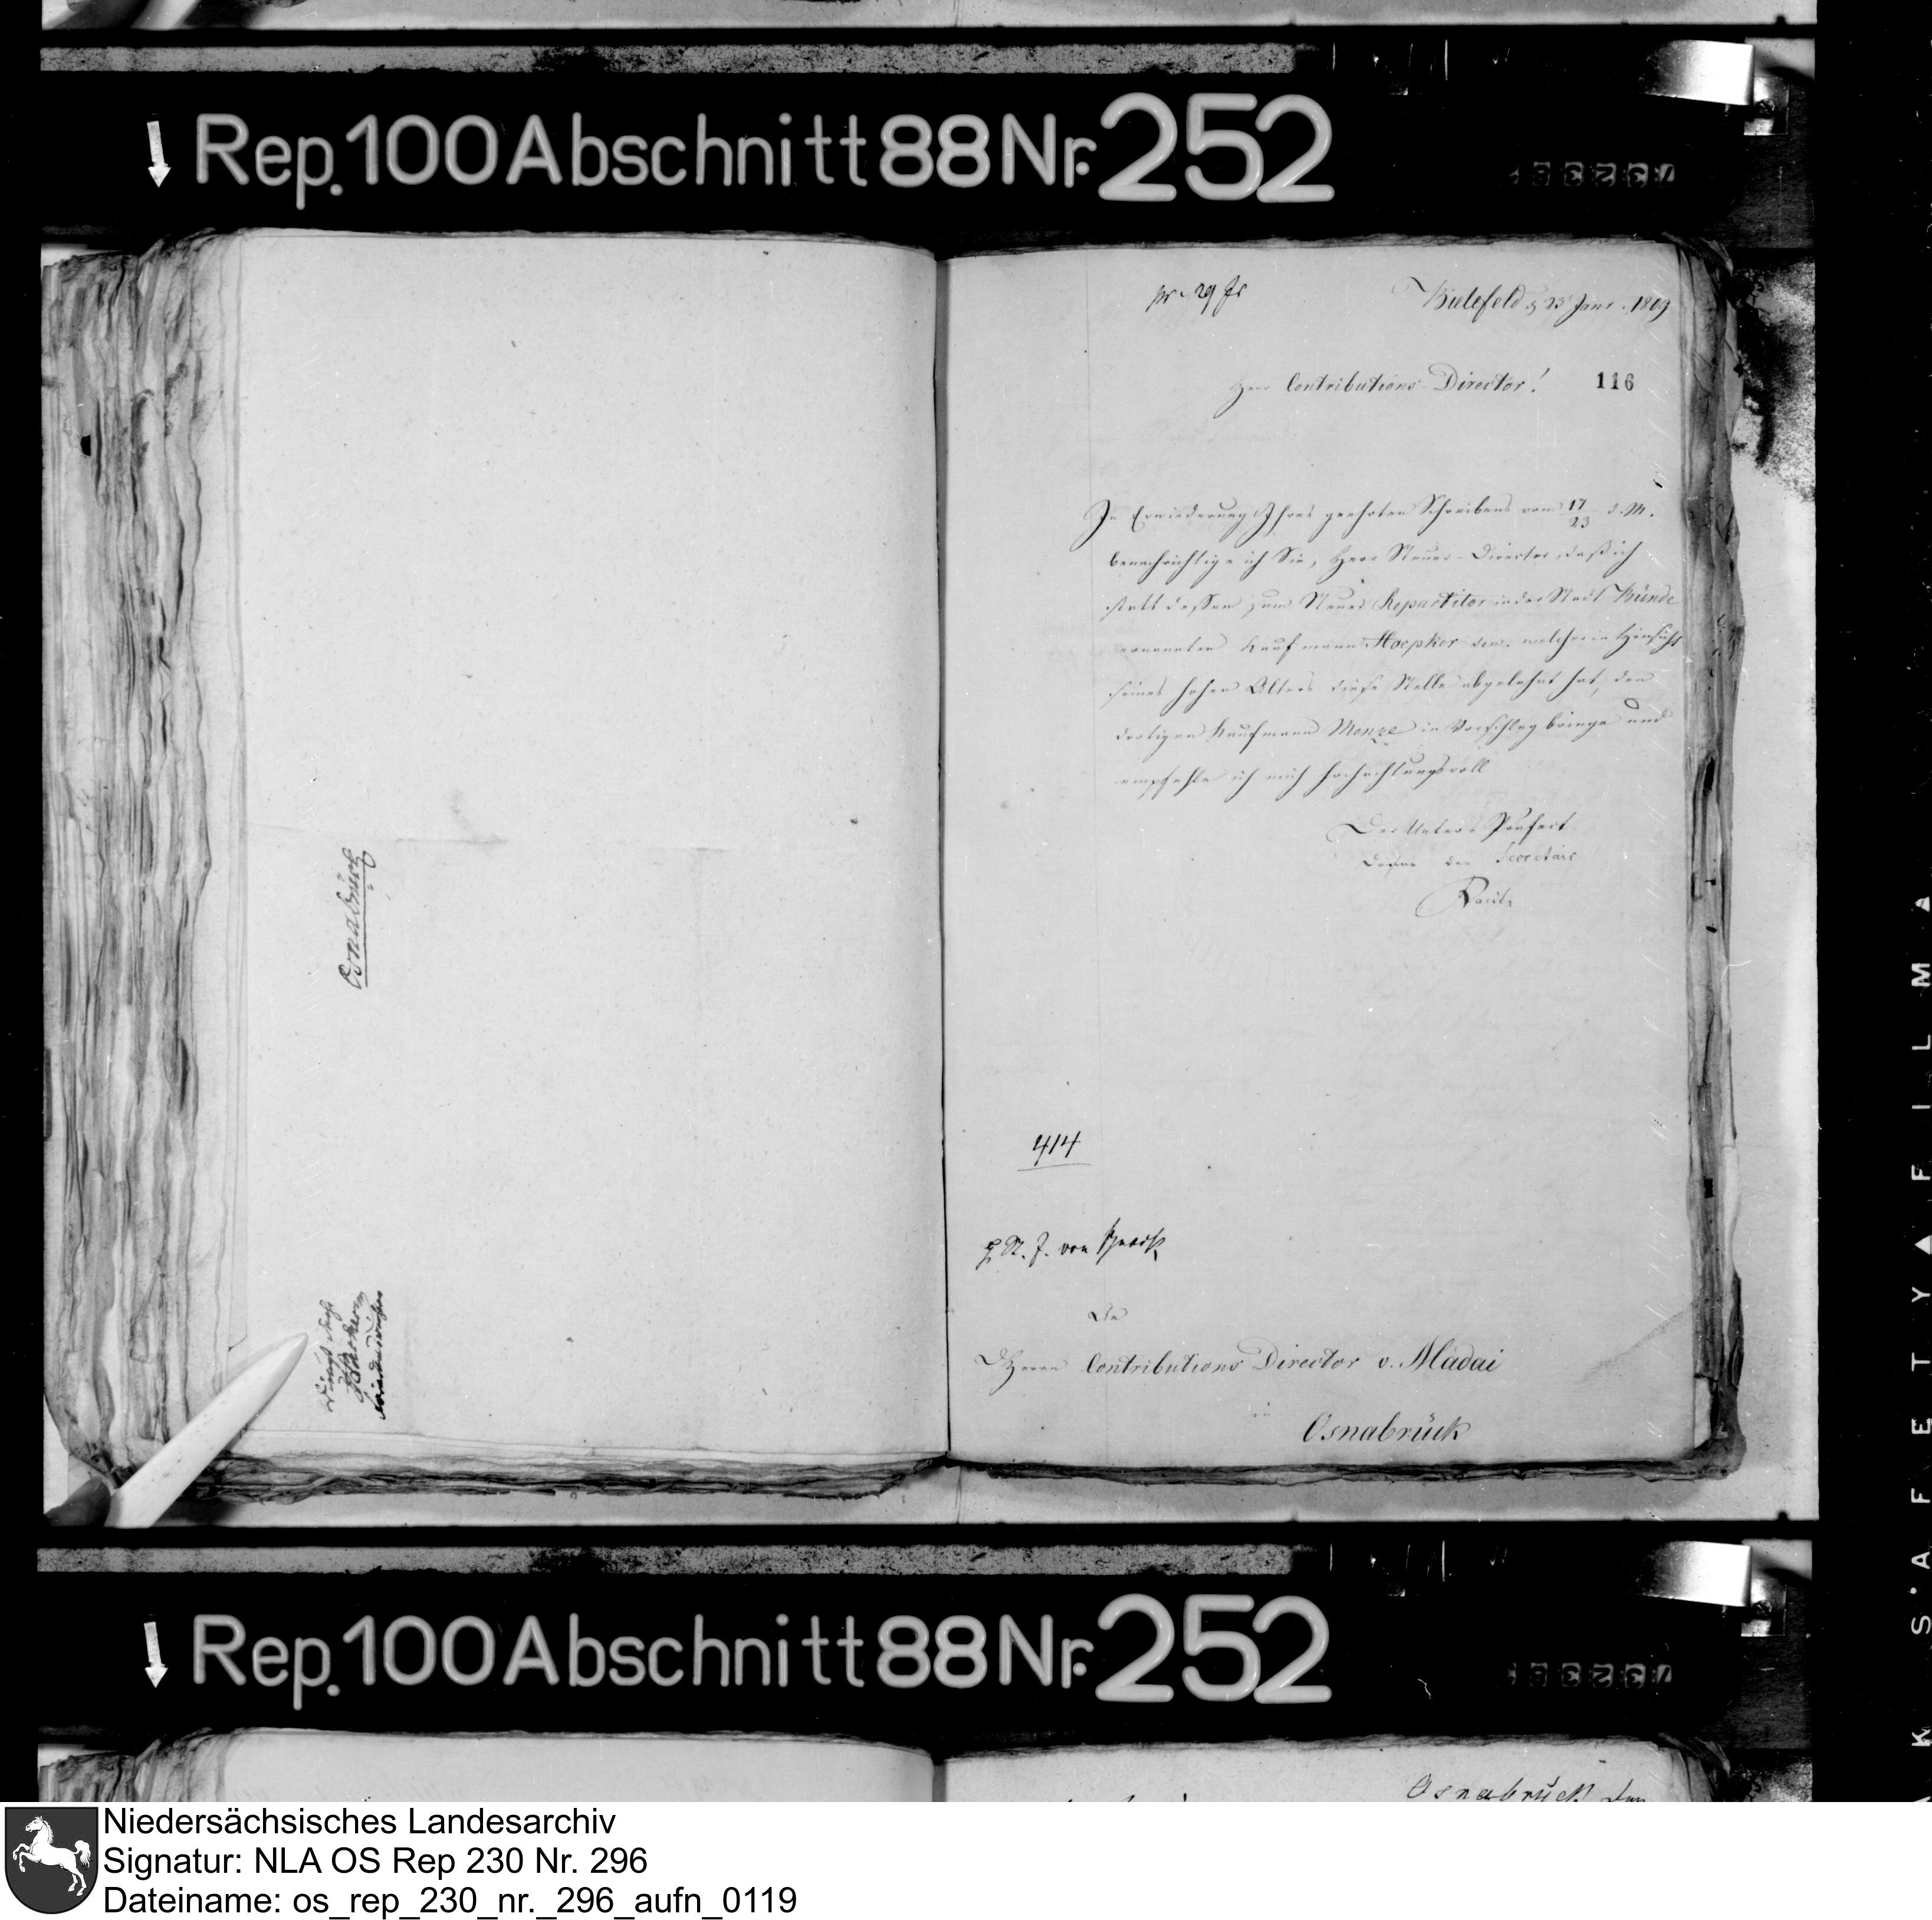 Rep. 100 Abschnitt 88 Nr. 252
pr. 29 Jr
Bielefeld d 23 Janr. 1809
Herr Contributions-Director!
116
In Erwiederung Ihres geehrten Schreibens vom 17/23 d. M.
benachrichtige ich Sie, Herr Steuer-Director, daß ich
statt dessen zum Steuer Repartitor in der Stadt Bünde
ernannten Kaufmann Hoepker sen. welcher in Hinsicht
seines hohen Alters diese Stelle abgelehnt hat, den
dortigen Kaufmann Menze in Vorschlag bringe und
empfehle ich mich hochachtungsvoll
Der Unter-Präfect
der Secretair
414
Osnabrück
An
D Herrn Contributions Director v. Madai
in
Osnabrück
Rep. 100 Abschnitt 88 Nr. 252
Osnabrück den
Niedersächsisches Landesarchiv
Signatur: NLA OS Rep 230 Nr. 296
Dateiname: os_rep_230_nr._296_aufn_0119
K S'A F E T Y ▲ F I L M ▲